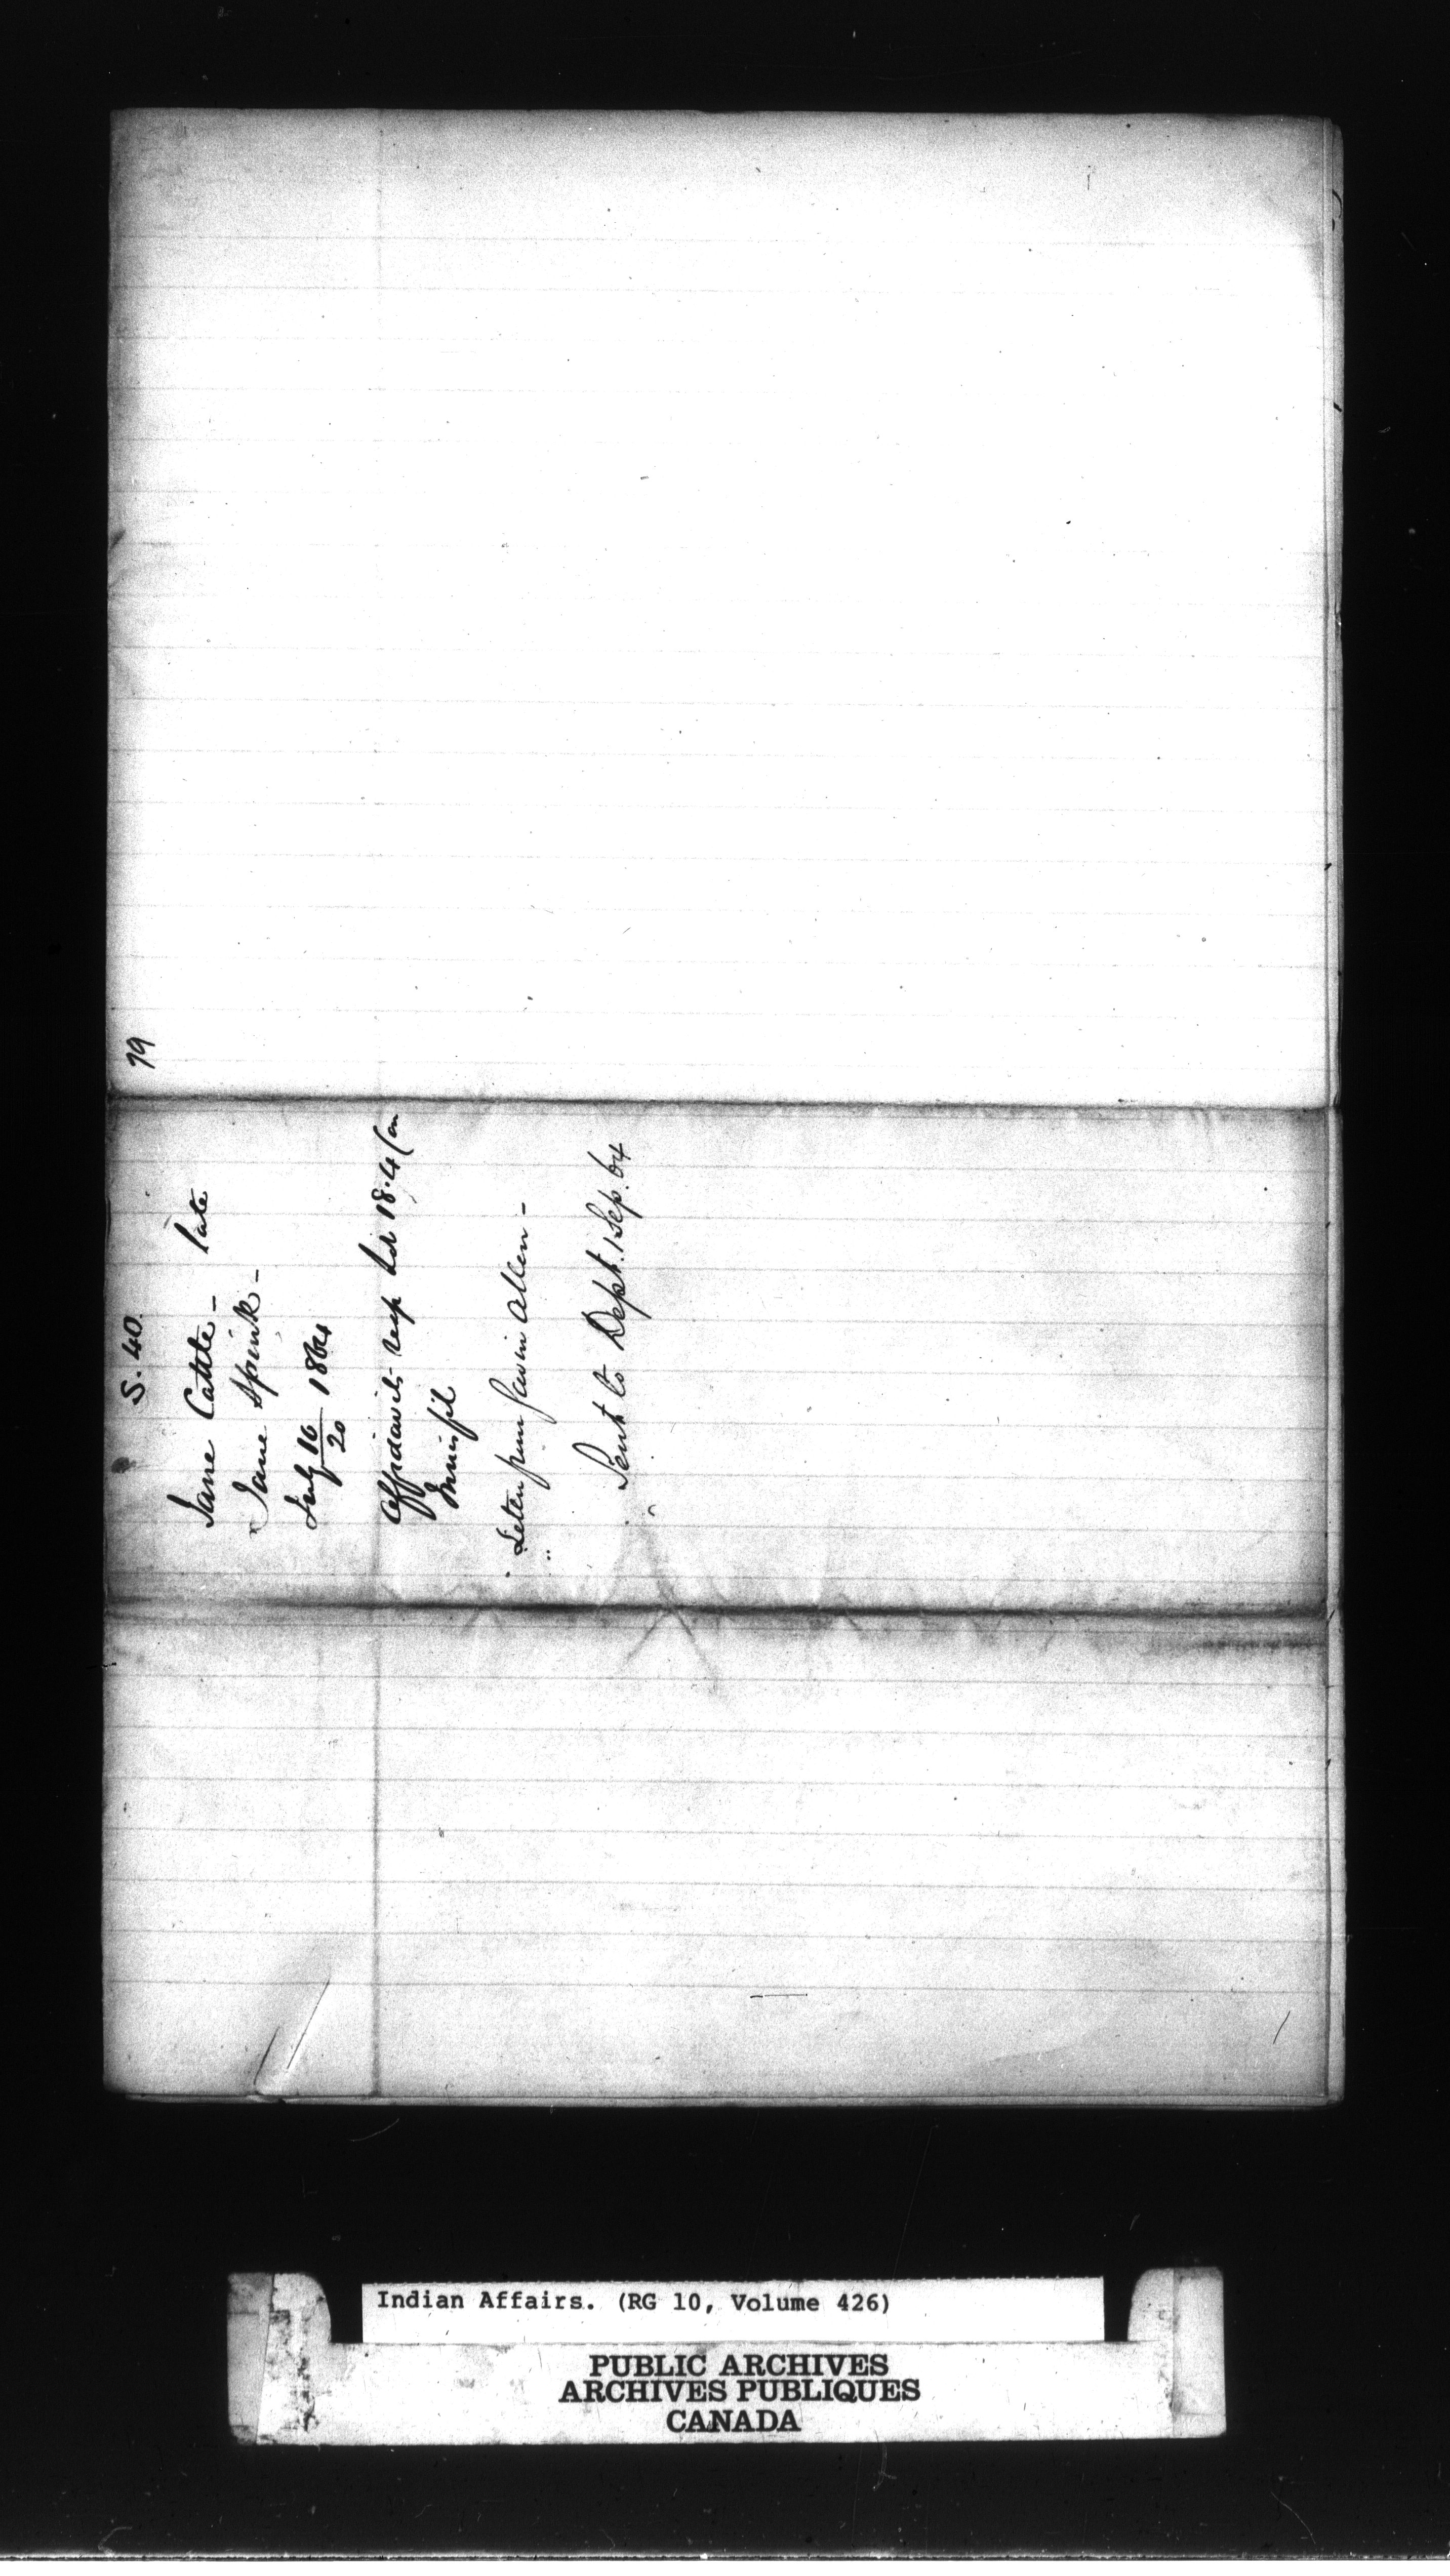 79
S. 40.
Jane Cattle - late
Jane Spink -
July 16/20 1864
Affidavit resp Lot 18.4 Con
Innisfil
Letter from Gavin Allen -
Sent to Dept. 1 Sep. 64
Indian Affairs. (RG 10, Volume 426)
PUBLIC ARCHIVES
ARCHIVES PUBLIQUES
CANADA